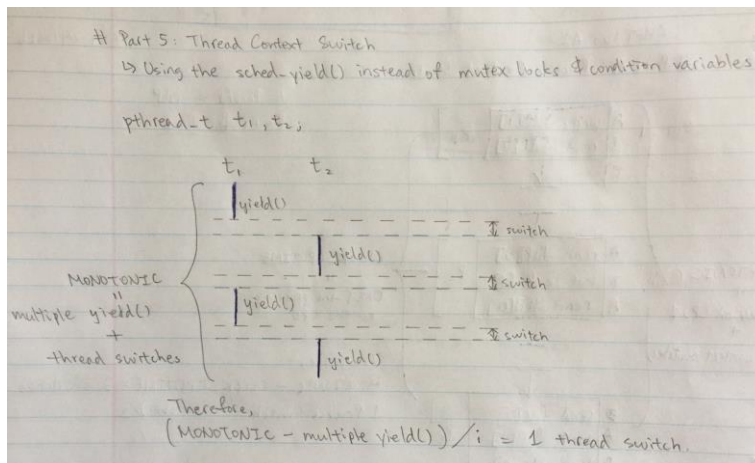 # Part 5: Thread Context Switch
↳ Using the sched_yield() instead of mutex locks & condition variables
pthread_t t1, t2;
t1 t2
yield()
switch
yield()
MONOTONIC
switch
"
multiple yield()
yield()
+
switch
thread switches
yield()
Therefore,
(MONOTONIC - multiple yield())/i = 1 thread switch.